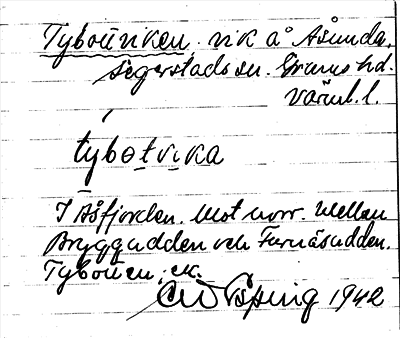 Tyboviken. vik å Åsunda,
Segerstads sn. Grums hd.
Värml. l.
tybotvika
I Åsfjorden. Mot norr. Mellan
Bryggudden och Furnäsudden.
Tybouen, ek.
1942